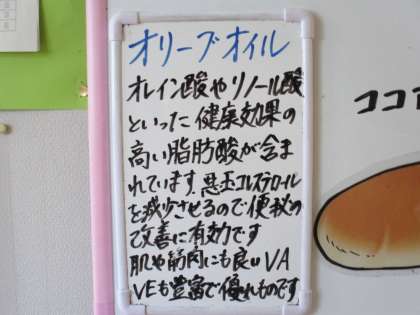 オリーブオイル
オレイン酸やリノール酸
といった健康効果の
高い脂肪酸が含ま
れています。悪玉コレステロール
を減少させるので便秘の
改善に有効です
肌や筋肉にも良いVA
VEも豊富で優れものです
ココア